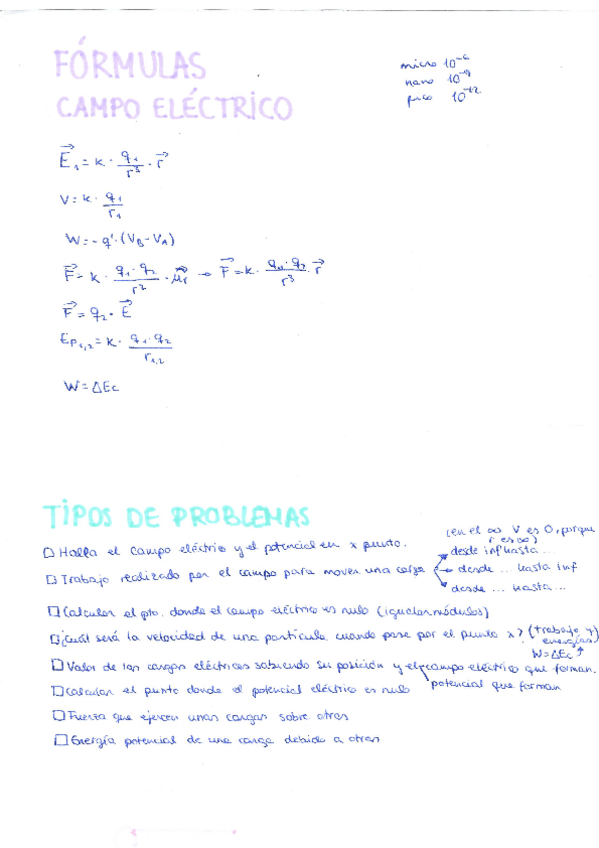 FÓRMULAS
CAMPO ELÉCTRICO
micro 10⁻⁶
nano 10⁻⁹
pico 10⁻¹²
E⃗₁ = K · q₁/r³ · r⃗
V = K · q₁/r₁
W = -q' · (V_B - V_A)
F⃗ = K · q₁·q₂/r² · μ⃗r → F⃗ = K · q₁·q₂/r³ · r⃗
F⃗ = q₂ · E⃗
Ep₁,₂ = K · q₁·q₂/r₁,₂
W = ΔEc
TIPOS DE PROBLEMAS
(en el ∞ V es 0, porque
r es ∞)
□ Halla el campo eléctrico y el potencial en x punto.
desde inf hasta ...
□ Trabajo realizado por el campo para mover una carga → desde ... hasta inf
desde ... hasta ...
□ Calcular el pto. donde el campo eléctrico es nulo (igualar módulos)
□ ¿Cuál será la velocidad de una partícula cuando pase por el punto x? (trabajo y
energías)
W = ΔEc
□ Valor de las cargas eléctricas sabiendo su posición y el campo eléctrico que forman.
potencial que forman
□ Calcular el punto donde el potencial eléctrico es nulo
□ Fuerza que ejercen unas cargas sobre otras
□ Energía potencial de una carga debido a otras